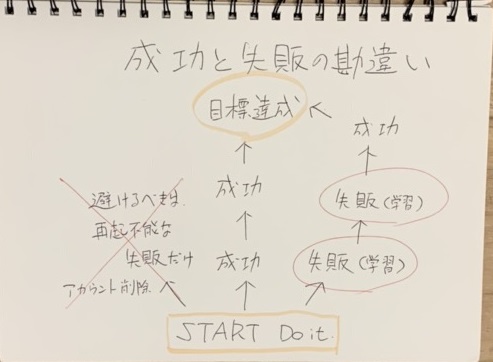 成功と失販の勘違い
目標達成
成功
成功
成功
失販(学習)
失販(学習)
避けるべきは
再起不能な
失販だけ
アカウント削除
START Do it.